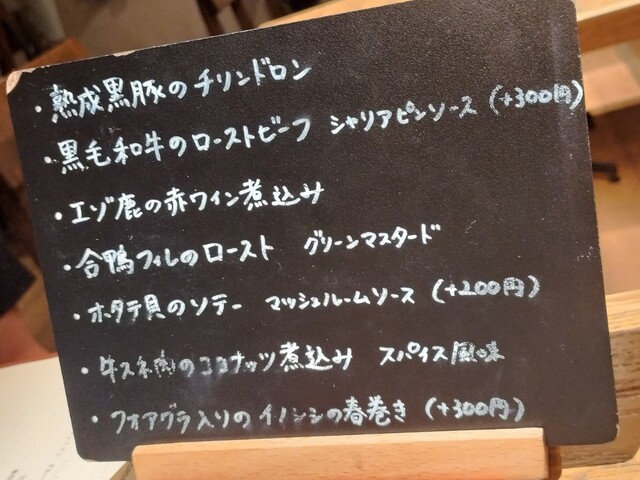 ・熟成黒豚のチリンドロン
・黒毛和牛のローストビーフ シャリアピンソース (+300円)
・エゾ鹿の赤ワイン煮込み
・合鴨フィレのロースト グリーンマスタード
・ホタテ貝のソテー マッシュルームソース (+200円)
・牛スネ肉のココナッツ煮込み スパイス風味
・フォアグラ入りのイノシシの春巻き (+300円)